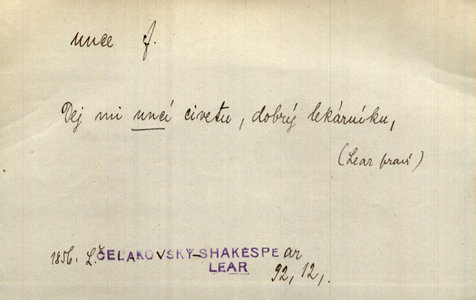 unce f.
Dej mi uncí civetu, dobrý lekárníku,
(Lear praví)
1856. L. ČELAKOVSKÝ-SHAKESPEar
LEAR
92, 12,.